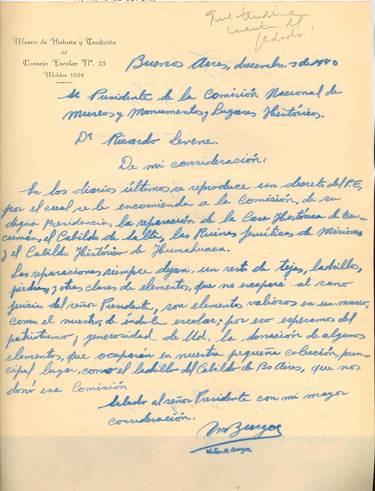 Que tendrá en
cuenta el
pedido!
Museo de Historia y Tradición
del
Consejo Escolar Nº. 15
Moldes 1854
Buenos Aires, diciembre 3 de 1940
Sr Presidente de la Comisión Nacional de
Museos y Monumentos y Lugares Históricos.
Dr Ricardo Levene.
De mi consideración:
En los diarios últimos se reproduce un decreto del P.E,
por el cual se le encomienda a la Comisión, de su
digna Presidencia, la reparación de la Casa Histórica de Tu-
cumán, el Cabildo de Salta, las Ruinas jesuíticas de Misiones
y el Cabildo Histórico de Humahuaca.
Las reparaciones siempre dejan un resto de tejas, ladrillos,
piedras, y otras clases de elementos, que no escapará al sano
juicio del señor Presidente, son elementos valiosos en un museo,
como el nuestro, de índole escolar; por eso esperamos del
patriotismo y generosidad de Ud, la donación de algunos
elementos, que ocuparán en nuestra pequeña colección, prin-
cipal lugar, como el ladrillo del Cabildo de Bs Aires, que nos
donó esa Comisión
Saludo al señor Presidente con mi mayor
consideración.
Burgos